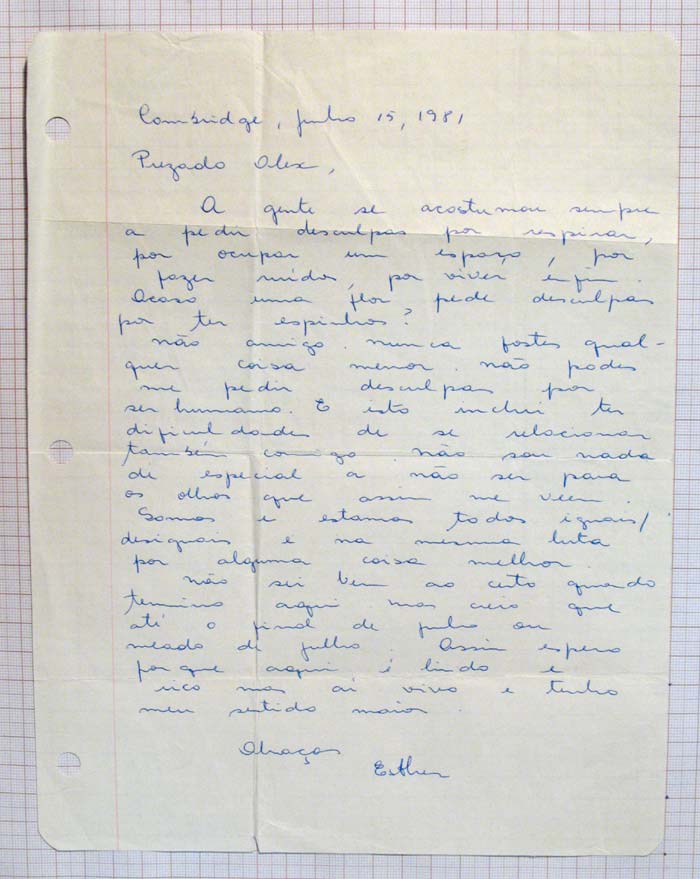 Cambridge, junho 15, 1981
Prezado Alex,
A gente se acostumou sempre
a pedir desculpas por respirar,
por ocupar um espaço, por
fazer ruídos, por viver enfim.
Acaso uma flor pede desculpas
por ter espinhos?
não amigo. nunca fostes qual-
quer coisa menor. não podes
me pedir desculpas por
ser humano. E isto inclui ter
dificuldades de se relacionar
também comigo. não sou nada
de especial a não ser para
os olhos que assim me veem.
Somos e estamos todos iguais/
desiguais e na mesma luta
por alguma coisa melhor.
não sei bem ao certo quando
termino aqui mas creio que
até o final de junho ou
meado de julho. Assim espero
porque aqui é lindo e
rico mas aí vivo e tenho
meu sentido maior.
Abraços
Esther